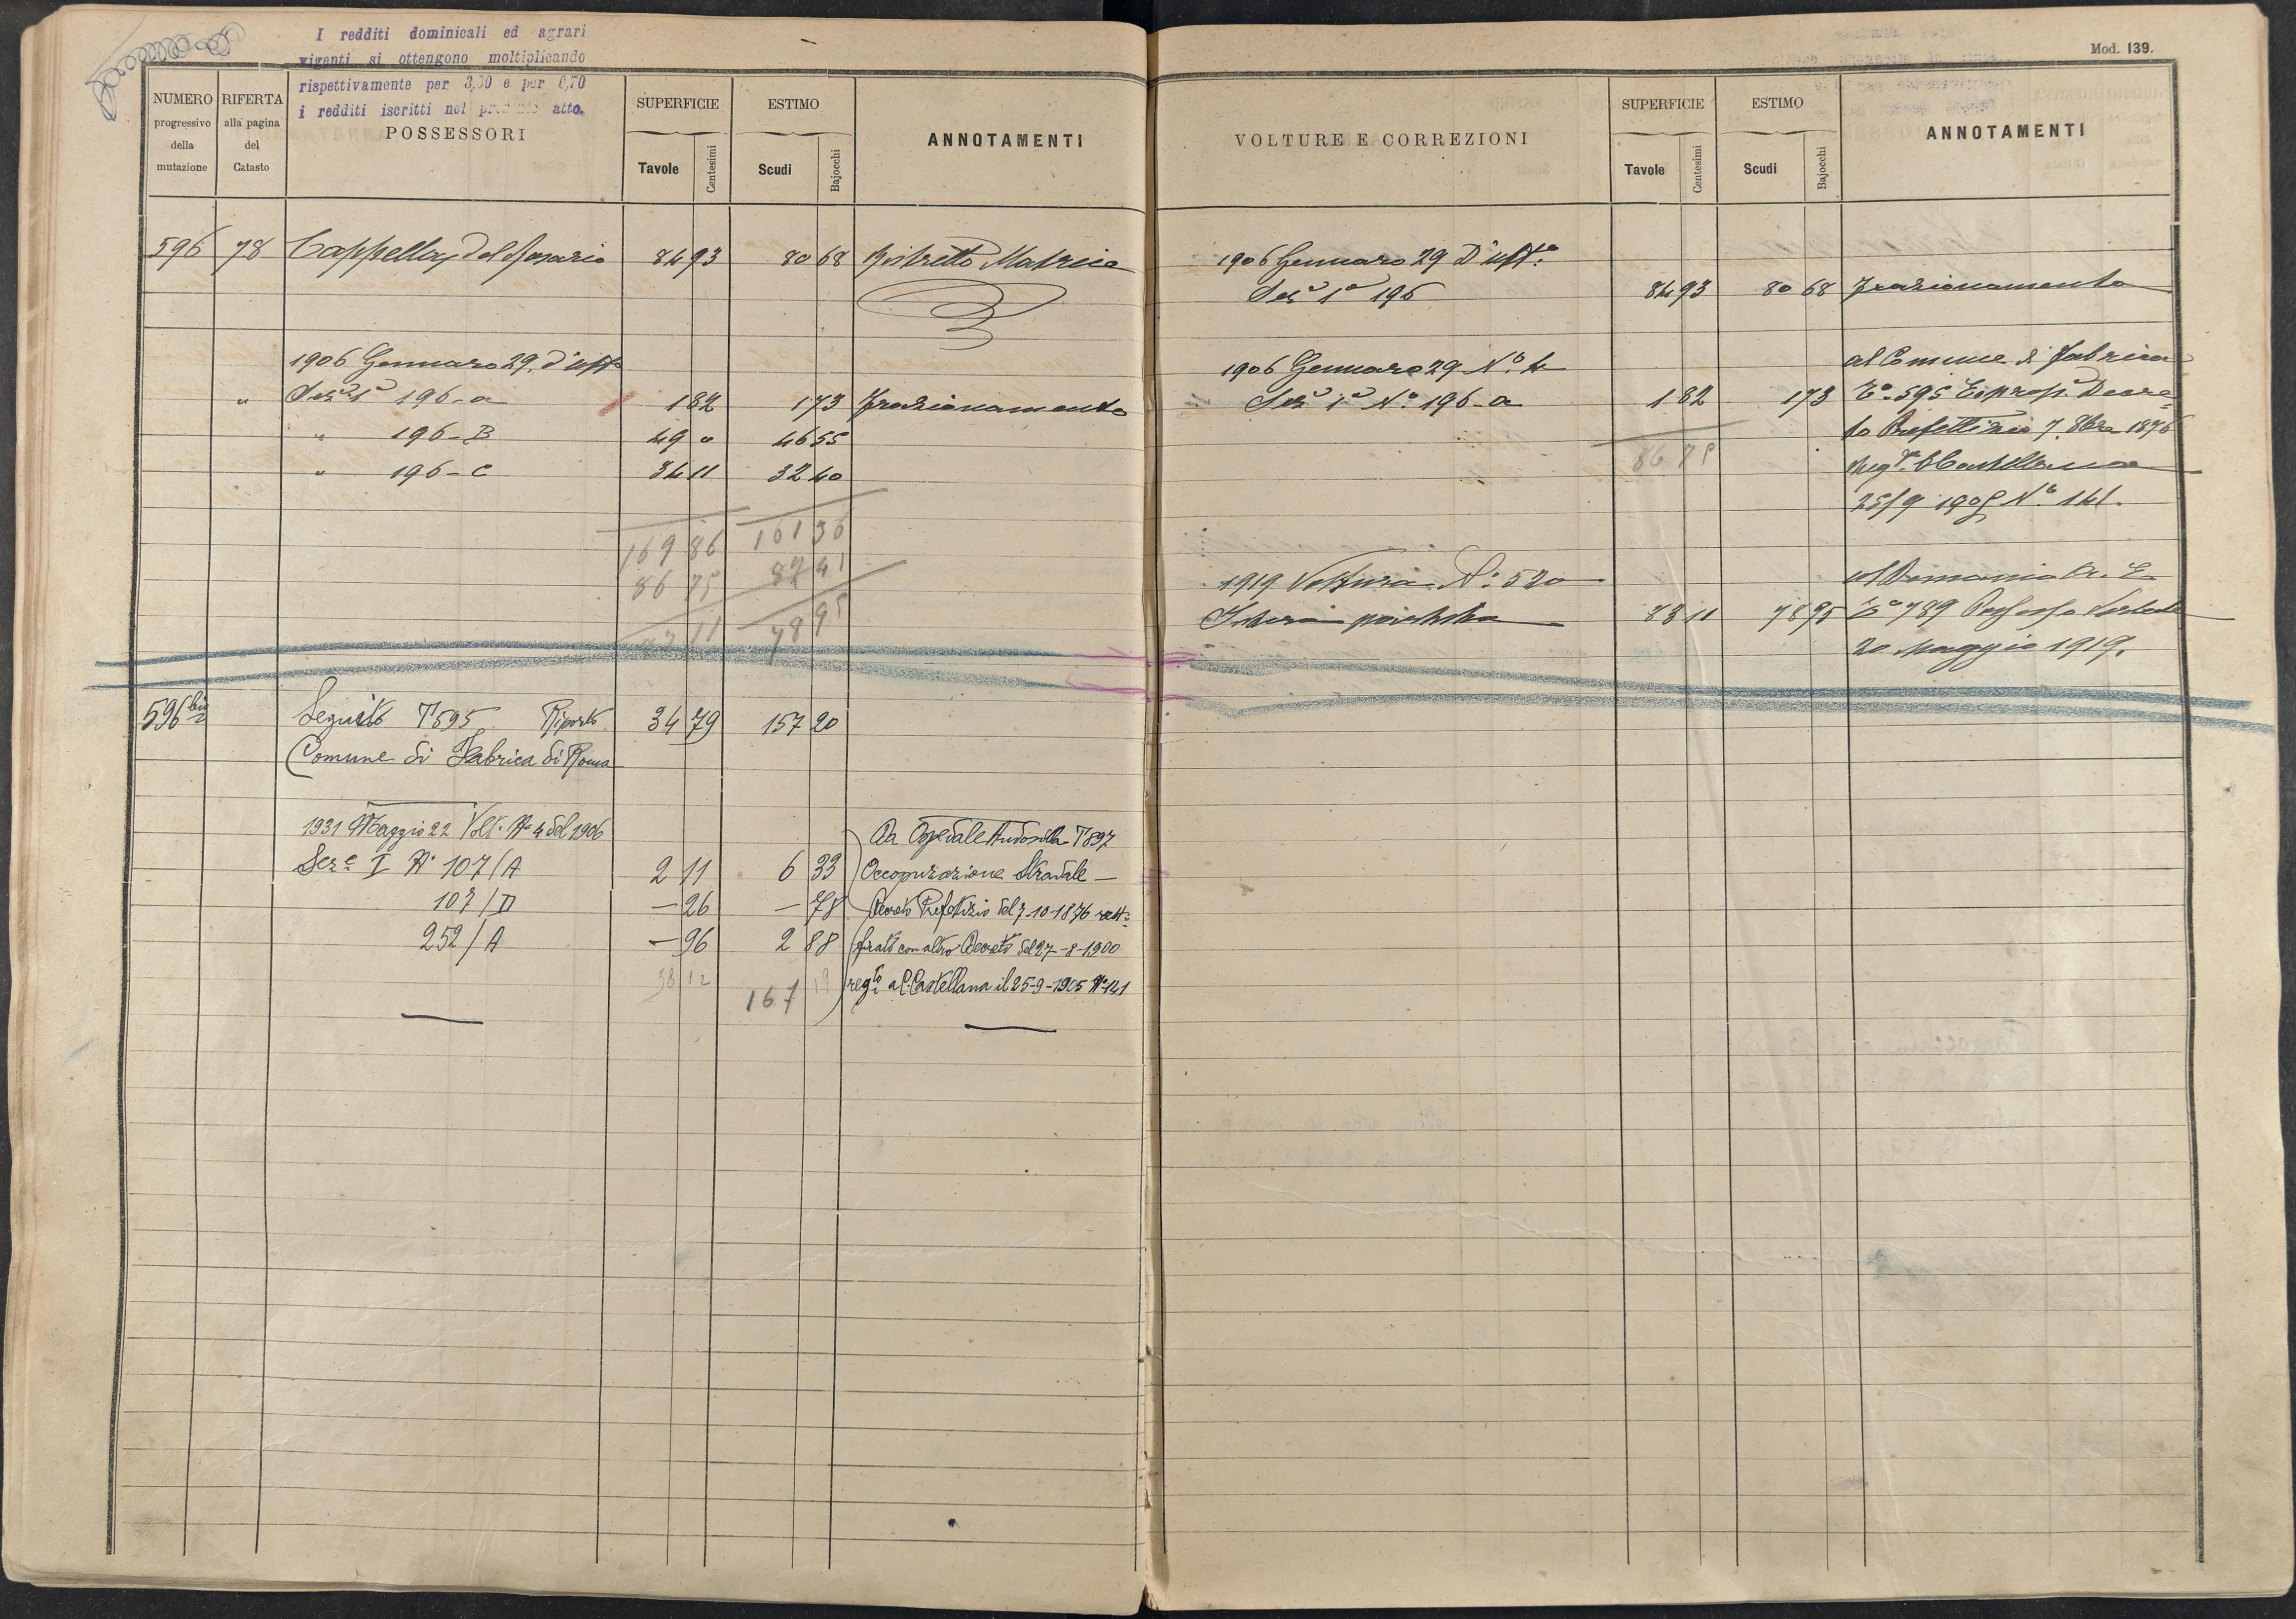 I redditi dominicali ed agrari
vigenti si ottengono moltiplicando
rispettivamente per 3,30 e per 0,70
i redditi iscritti nel atto.
NUMERO progressivo della mutazione
RIFERTA alla pagina del Catasto
POSSESSORI
SUPERFICIE
Tavole Centesimi
ESTIMO
Scudi Bajocchi
ANNOTAMENTI
596 78 Cappella del Rosario 84 93 80 68 Ristretto Matrice
1906 Gennaro 29. d'uff°
" Sez. 1a 196-a 1 82 1 73 Frazionamento
" 196-B 49 0 46 55
" 196-C 34 11 32 40
169 86 161 36
86 75 82 41
83 11 78 95
596 bis Seguito T 595 Riporto 34 79 157 20
Comune di Fabrica di Roma
1931 Maggio 22 Volt. N° 4 del 1906 Da Ospedale T 897
Sez.e I N° 107/A 2 11 6 33 Occupazione Stradale —
107/D — 26 — 78 Decreto Prefettizio del 7-10-1876 rett=
252/A — 96 2 88 ficato con altro Decreto del 27-8-1900
38 12 167 19 reg.to a C. Castellana il 25-9-1905 N° 141
Mod. 139.
VOLTURE E CORREZIONI
SUPERFICIE
Tavole Centesimi
ESTIMO
Scudi Bajocchi
ANNOTAMENTI
1906 Gennaro 29 D'uff.°
Sez. 1a 196 84 93 80 68 Frazionamento
1906 Gennaro 29 N° 4 al Comune di Fabrica
Sez. 1a N° 196-a 1 82 1 73 T° 595 Esprop. Decre-
86 75 to Prefettizio 7 8bre 1876
Reg.to C Castellana
25/9 1905 N° 141.
1919 Voltura N° 520 al Demanio
Intera partita 83 11 78 95 T° 789
20 Maggio 1919.